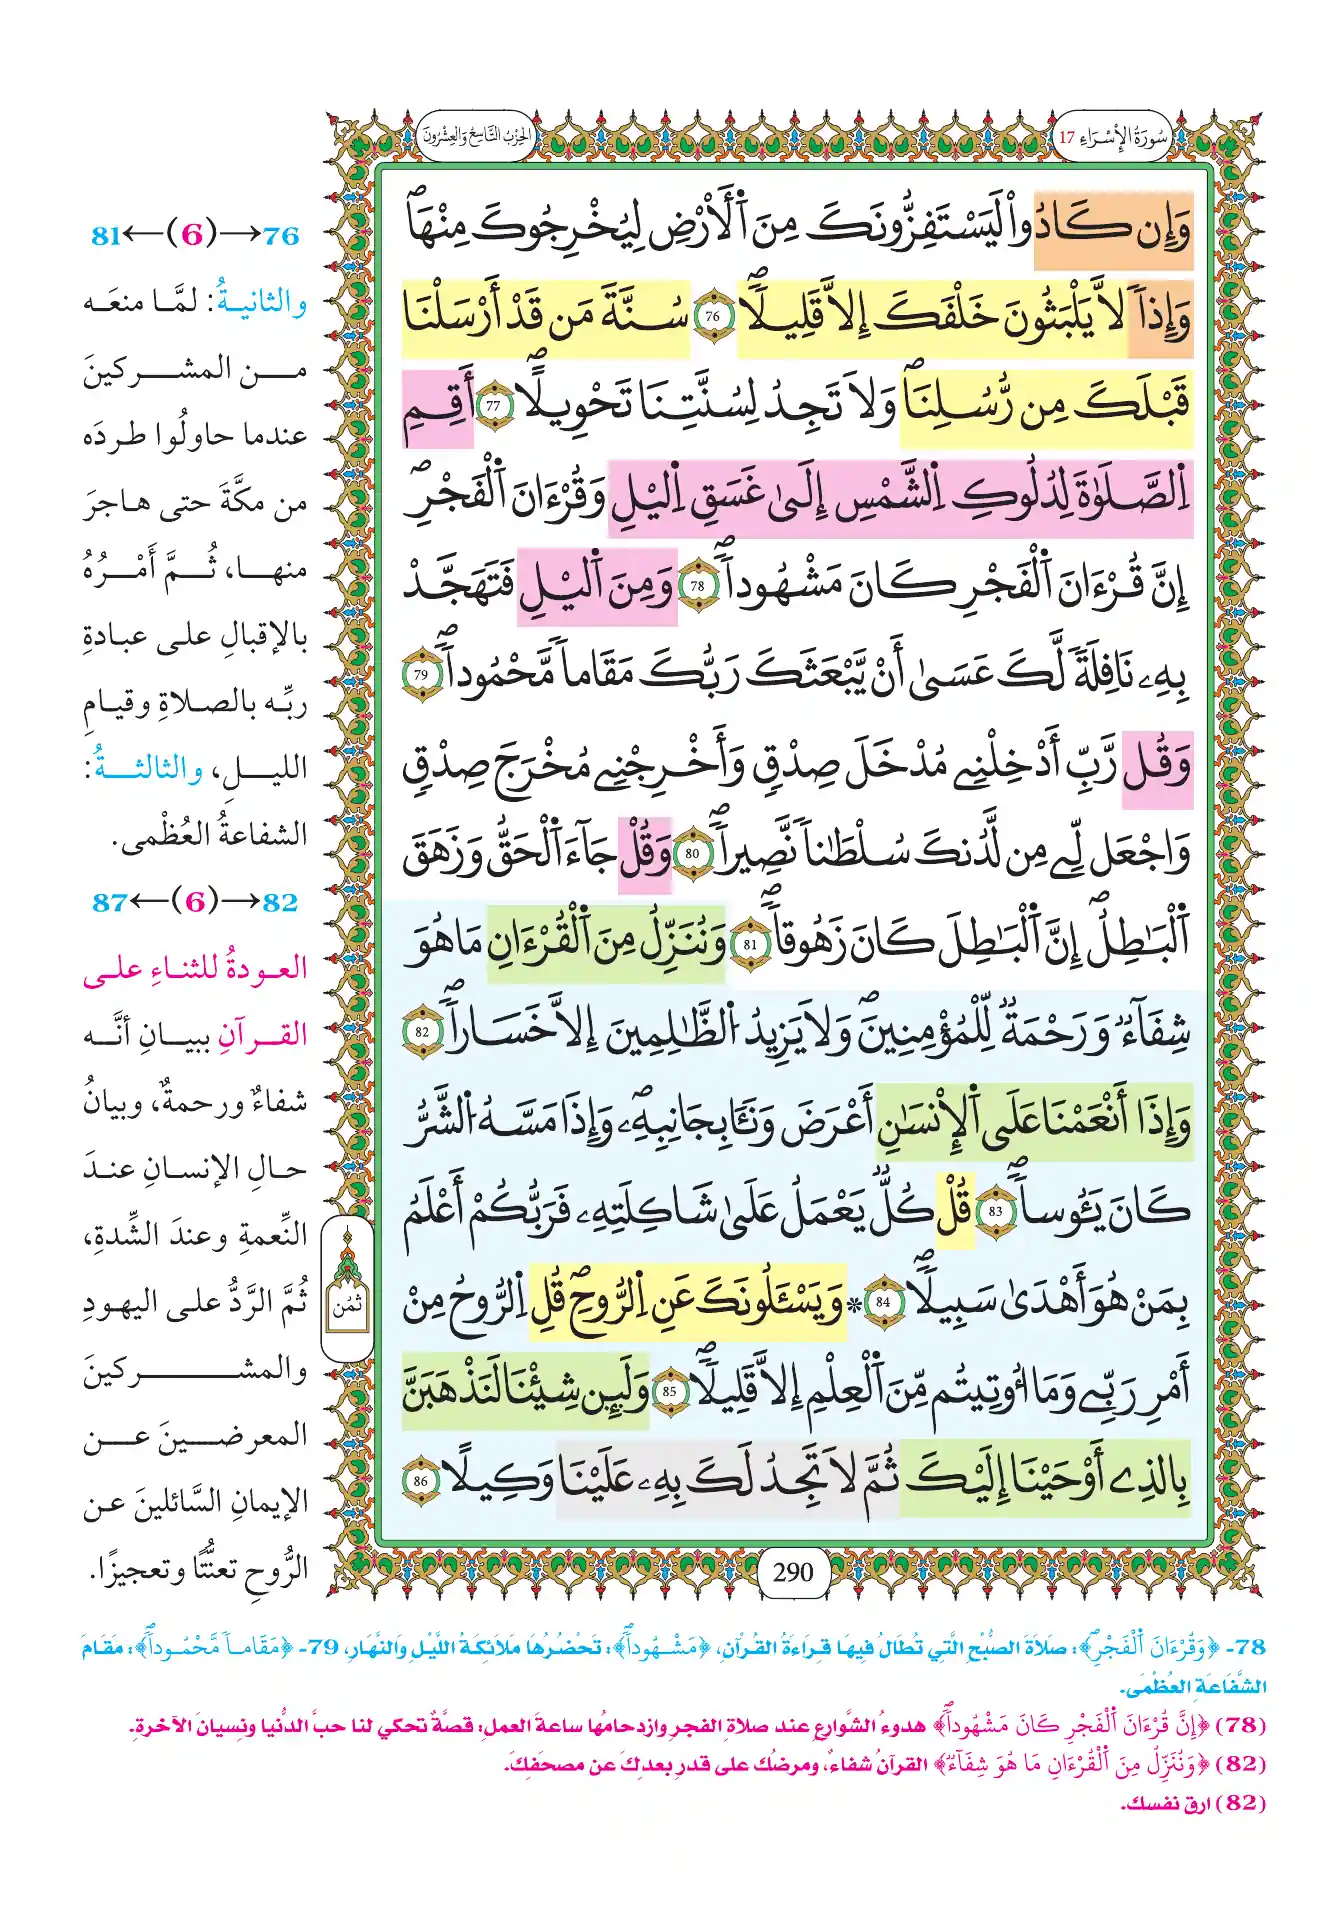 سُورَةُ الإِسْرَاءِ 17
الحِزْبُ التَّاسِعُ وَالعِشْرُونَ
وَإِن كَادُواْ لَيَسْتَفِزُّونَكَ مِنَ اَ۬لَارْضِ لِيُخْرِجُوكَ مِنْهَاۖ
وَإِذاٗ لَّا يَلْبَثُونَ خَلْفَكَ إِلَّا قَلِيلاٗۖ 76 سُنَّةَ مَن قَدَ اَرْسَلْنَا
قَبْلَكَ مِن رُّسُلِنَاۖ وَلَا تَجِدُ لِسُنَّتِنَا تَحْوِيلاًۖ 77 أَقِمِ
اِ۬لصَّلَوٰةَ لِدُلُوكِ اِ۬لشَّمْسِ إِلَىٰ غَسَقِ اِ۬ليْلِ وَقُرْءَانَ اَ۬لْفَجْرِۖ
إِنَّ قُرْءَانَ اَ۬لْفَجْرِ كَانَ مَشْهُوداٗۖ 78 وَمِنَ اَ۬ليْلِ فَتَهَجَّدْ
بِهِۦ نَافِلَةٗ لَّكَ عَسَىٰٓ أَنْ يَّبْعَثَكَ رَبُّكَ مَقَاماٗ مَّحْمُوداٗۖ 79
وَقُل رَّبِّ أَدْخِلْنِے مُدْخَلَ صِدْقٖ وَأَخْرِجْنِے مُخْرَجَ صِدْقٖ
وَاجْعَل لِّے مِن لَّدُنكَ سُلْطَٰناٗ نَّصِيراٗۖ 80 وَقُلْ جَآءَ اَ۬لْحَقُّ وَزَهَقَ
اَ۬لْبَٰطِلُۖ إِنَّ اَ۬لْبَٰطِلَ كَانَ زَهُوقاٗۖ 81 وَنُنَزِّلُ مِنَ اَ۬لْقُرْءَانِ مَا هُوَ
شِفَآءٞ وَرَحْمَةٞ لِّلْمُؤْمِنِينَۖ وَلَا يَزِيدُ اُ۬لظَّٰلِمِينَ إِلَّا خَسَاراٗۖ 82
وَإِذَآ أَنْعَمْنَا عَلَى اَ۬لِانسَٰنِ أَعْرَضَ وَنَـَٔا بِجَانِبِهِۦۖ وَإِذَا مَسَّهُ اُ۬لشَّرُّ
كَانَ يَـُٔوساٗۖ 83 قُلْ كُلّٞ يَعْمَلُ عَلَىٰ شَاكِلَتِهِۦ فَرَبُّكُمُۥٓ أَعْلَمُ
بِمَنْ هُوَ أَهْدَىٰ سَبِيلاٗۖ 84 * وَيَسْـَٔلُونَكَ عَنِ اِ۬لرُّوحِۖ قُلِ اِ۬لرُّوحُ مِنَ
اَمْرِ رَبِّے وَمَآ أُوتِيتُم مِّنَ اَ۬لْعِلْمِ إِلَّا قَلِيلاٗۖ 85 وَلَئِن شِئْنَا لَنَذْهَبَنَّ
بِالذِےٓ أَوْحَيْنَآ إِلَيْكَ ثُمَّ لَا تَجِدُ لَكَ بِهِۦ عَلَيْنَا وَكِيلاً 86
ثُمُن
290
76→(6)←81
والثانيةُ: لمَّا منعَه
من المشركينَ
عندما حاولُوا طردَه
من مكَّةَ حتى هاجرَ
منها، ثُمَّ أَمْرُهُ
بالإقبالِ على عبادةِ
ربِّه بالصلاةِ وقيامِ
الليلِ، والثالثةُ:
الشفاعةُ العُظْمى.
82→(6)←87
العودةُ للثناءِ على
القرآنِ ببيانِ أنَّه
شفاءٌ ورحمةٌ، وبيانُ
حالِ الإنسانِ عندَ
النِّعمةِ وعندَ الشِّدةِ،
ثُمَّ الرَّدُّ على اليهودِ
والمشركينَ
المعرضينَ عن
الإيمانِ السَّائلينَ عن
الرُّوحِ تعنُّتًا وتعجيزًا.
78- ﴿وَقُرْءَانَ اَ۬لْفَجْرِۖ﴾: صَلَاةَ الصُّبْحِ الَّتِي تُطَالُ فِيهَا قِرَاءَةُ القُرآنِ، ﴿مَشْهُوداٗۖ﴾: تَحْضُرُهَا مَلَائِكَةُ اللَّيْلِ وَالنَّهَارِ، 79- ﴿مَقَاماٗ مَّحْمُوداٗۖ﴾: مَقَامَ
الشَّفَاعَةِ العُظْمَى.
(78) ﴿إِنَّ قُرْءَانَ اَ۬لْفَجْرِ كَانَ مَشْهُوداٗۖ﴾ هدوءُ الشَّوارعِ عند صلاةِ الفجرِ وازدحامُها ساعةَ العملِ: قصةٌ تحكي لنا حبَّ الدُّنيا ونسيانَ الآخرةِ.
(82) ﴿وَنُنَزِّلُ مِنَ اَ۬لْقُرْءَانِ مَا هُوَ شِفَآءٞ﴾ القرآنُ شفاءٌ، ومرضُك على قدرِ بعدِكَ عن مصحَفِكَ.
(82) ارق نفسك.